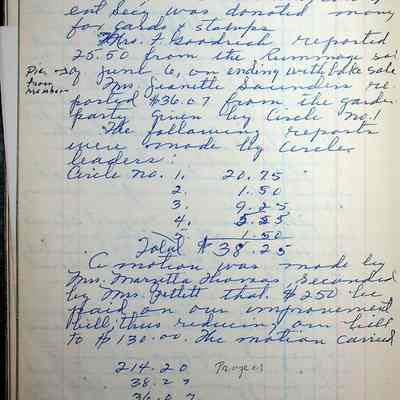 ent Sec. was donated money
for cards & stamps.
Mrs. F. Goodrich reported
25.50 from the Rummage sal
of June 6, on ending with bake sale
from
member
Mrs. Jeanette Saunders re-
ported $36.07 from the garden
party given by Circle No. 1
The following reports
were made by Circle
leaders:
Circle No. 1. 20.75
2. 1.50
3. 9.25
4. 5.25
5. 1.50
Total $38.25
A motion was made by
Mrs. Marietta Thomas, seconded
by Mrs. that $250 be
paid on our improvement
bill, thus reducing our bill
to $130.00. The motion carried
214.20
38.27
36.07